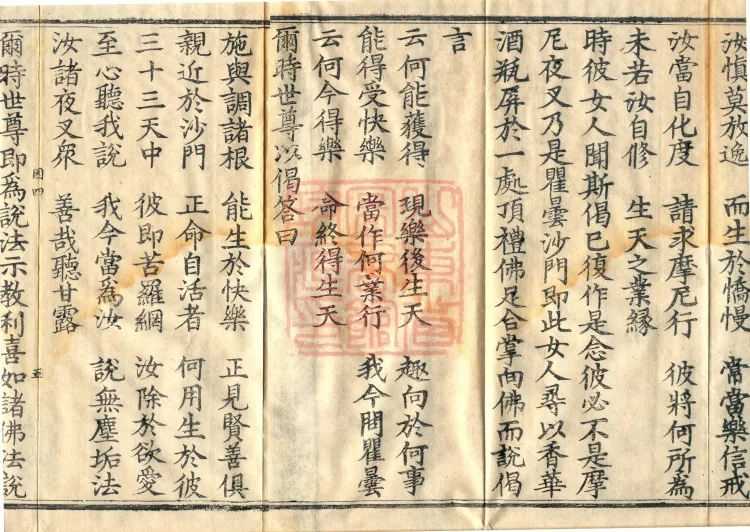 汝慎莫放逸　而生於憍慢　常當樂信戒
汝當自化度　請求摩尼行　彼將何所為
未若汝自修　生天之業緣
時彼女人聞斯偈已復作是念彼必不是摩
尼夜叉乃是瞿曇沙門即此女人尋以香華
酒瓶屏於一處頂禮佛足合掌向佛而說偈
言
云何能獲得　現樂後生天　趣向於何事
能得受快樂　當作何業行　我今問瞿曇
云何今得樂　命終得生天
爾時世尊以偈答曰
施與調諸根　能生於快樂　正見賢善俱
親近於沙門　正命自活者　何用生於彼
三十三天中　彼即苦羅網　汝除於欲愛
至心聽我說　我今當為汝　說無塵垢法
汝諸夜叉眾　善哉聽甘露
因四　五
爾時世尊即為說法示教利喜如諸佛法說